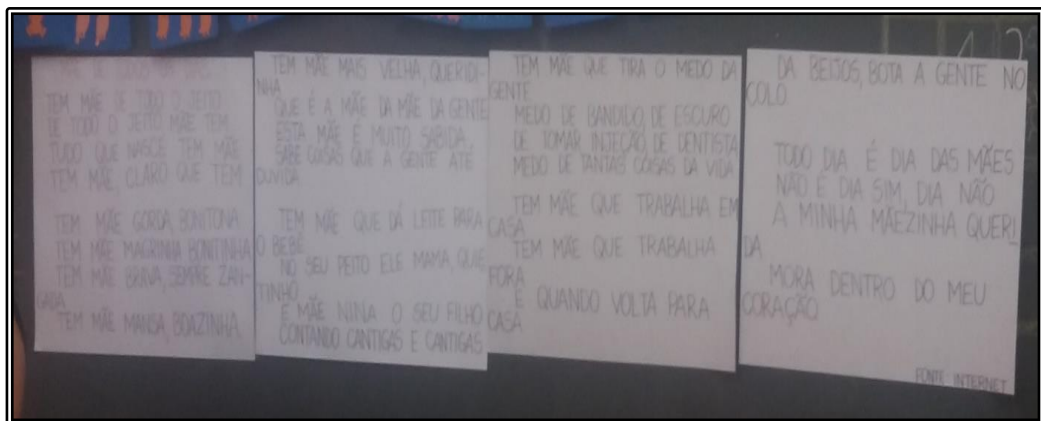 MÃE DE TODOS OS DIAS
TEM MÃE DE TODO O JEITO
DE TODO O JEITO MÃE TEM
TUDO QUE NASCE TEM MÃE
TEM MÃE, CLARO QUE TEM
TEM MÃE GORDA, BONITONA
TEM MÃE MAGRINHA BONITINHA
TEM MÃE BRAVA, SEMPRE ZAN-
GADA
TEM MÃE MANSA, BOAZINHA
TEM MÃE MAIS VELHA, QUERIDI-
NHA
QUE É A MÃE DA MÃE DA GENTE
ESTA MÃE É MUITO SABIDA
SABE COISAS QUE A GENTE ATÉ
DUVIDA
TEM MÃE QUE DÁ LEITE PARA
O BEBÊ
NO SEU PEITO ELE MAMA, QUIE
TINHO
E MÃE NINA O SEU FILHO
CONTANDO CANTIGAS E CANTIGAS
TEM MÃE QUE TIRA O MEDO DA
GENTE
MEDO DE BANDIDO, DE ESCURO
DE TOMAR INJEÇÃO, DE DENTISTA
MEDO DE TANTAS COISAS DA VIDA
TEM MÃE QUE TRABALHA EM
CASA
TEM MÃE QUE TRABALHA
FORA
E QUANDO VOLTA PARA
CASA
DA BEIJOS, BOTA A GENTE NO
COLO.
TODO DIA É DIA DAS MÃES
NÃO É DIA SIM, DIA NÃO
A MINHA MÃEZINHA QUERI
DA
MORA DENTRO DO MEU
CORAÇÃO
FONTE: INTERNET